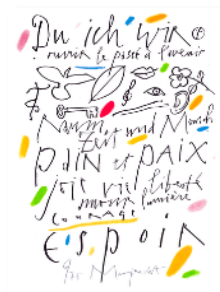 Du ich wir
ouvrir le passé à l'avenir
Raum
Zeit und Mensch
pain et paix
joie vie liberté
amour lumière
courage
Espoir